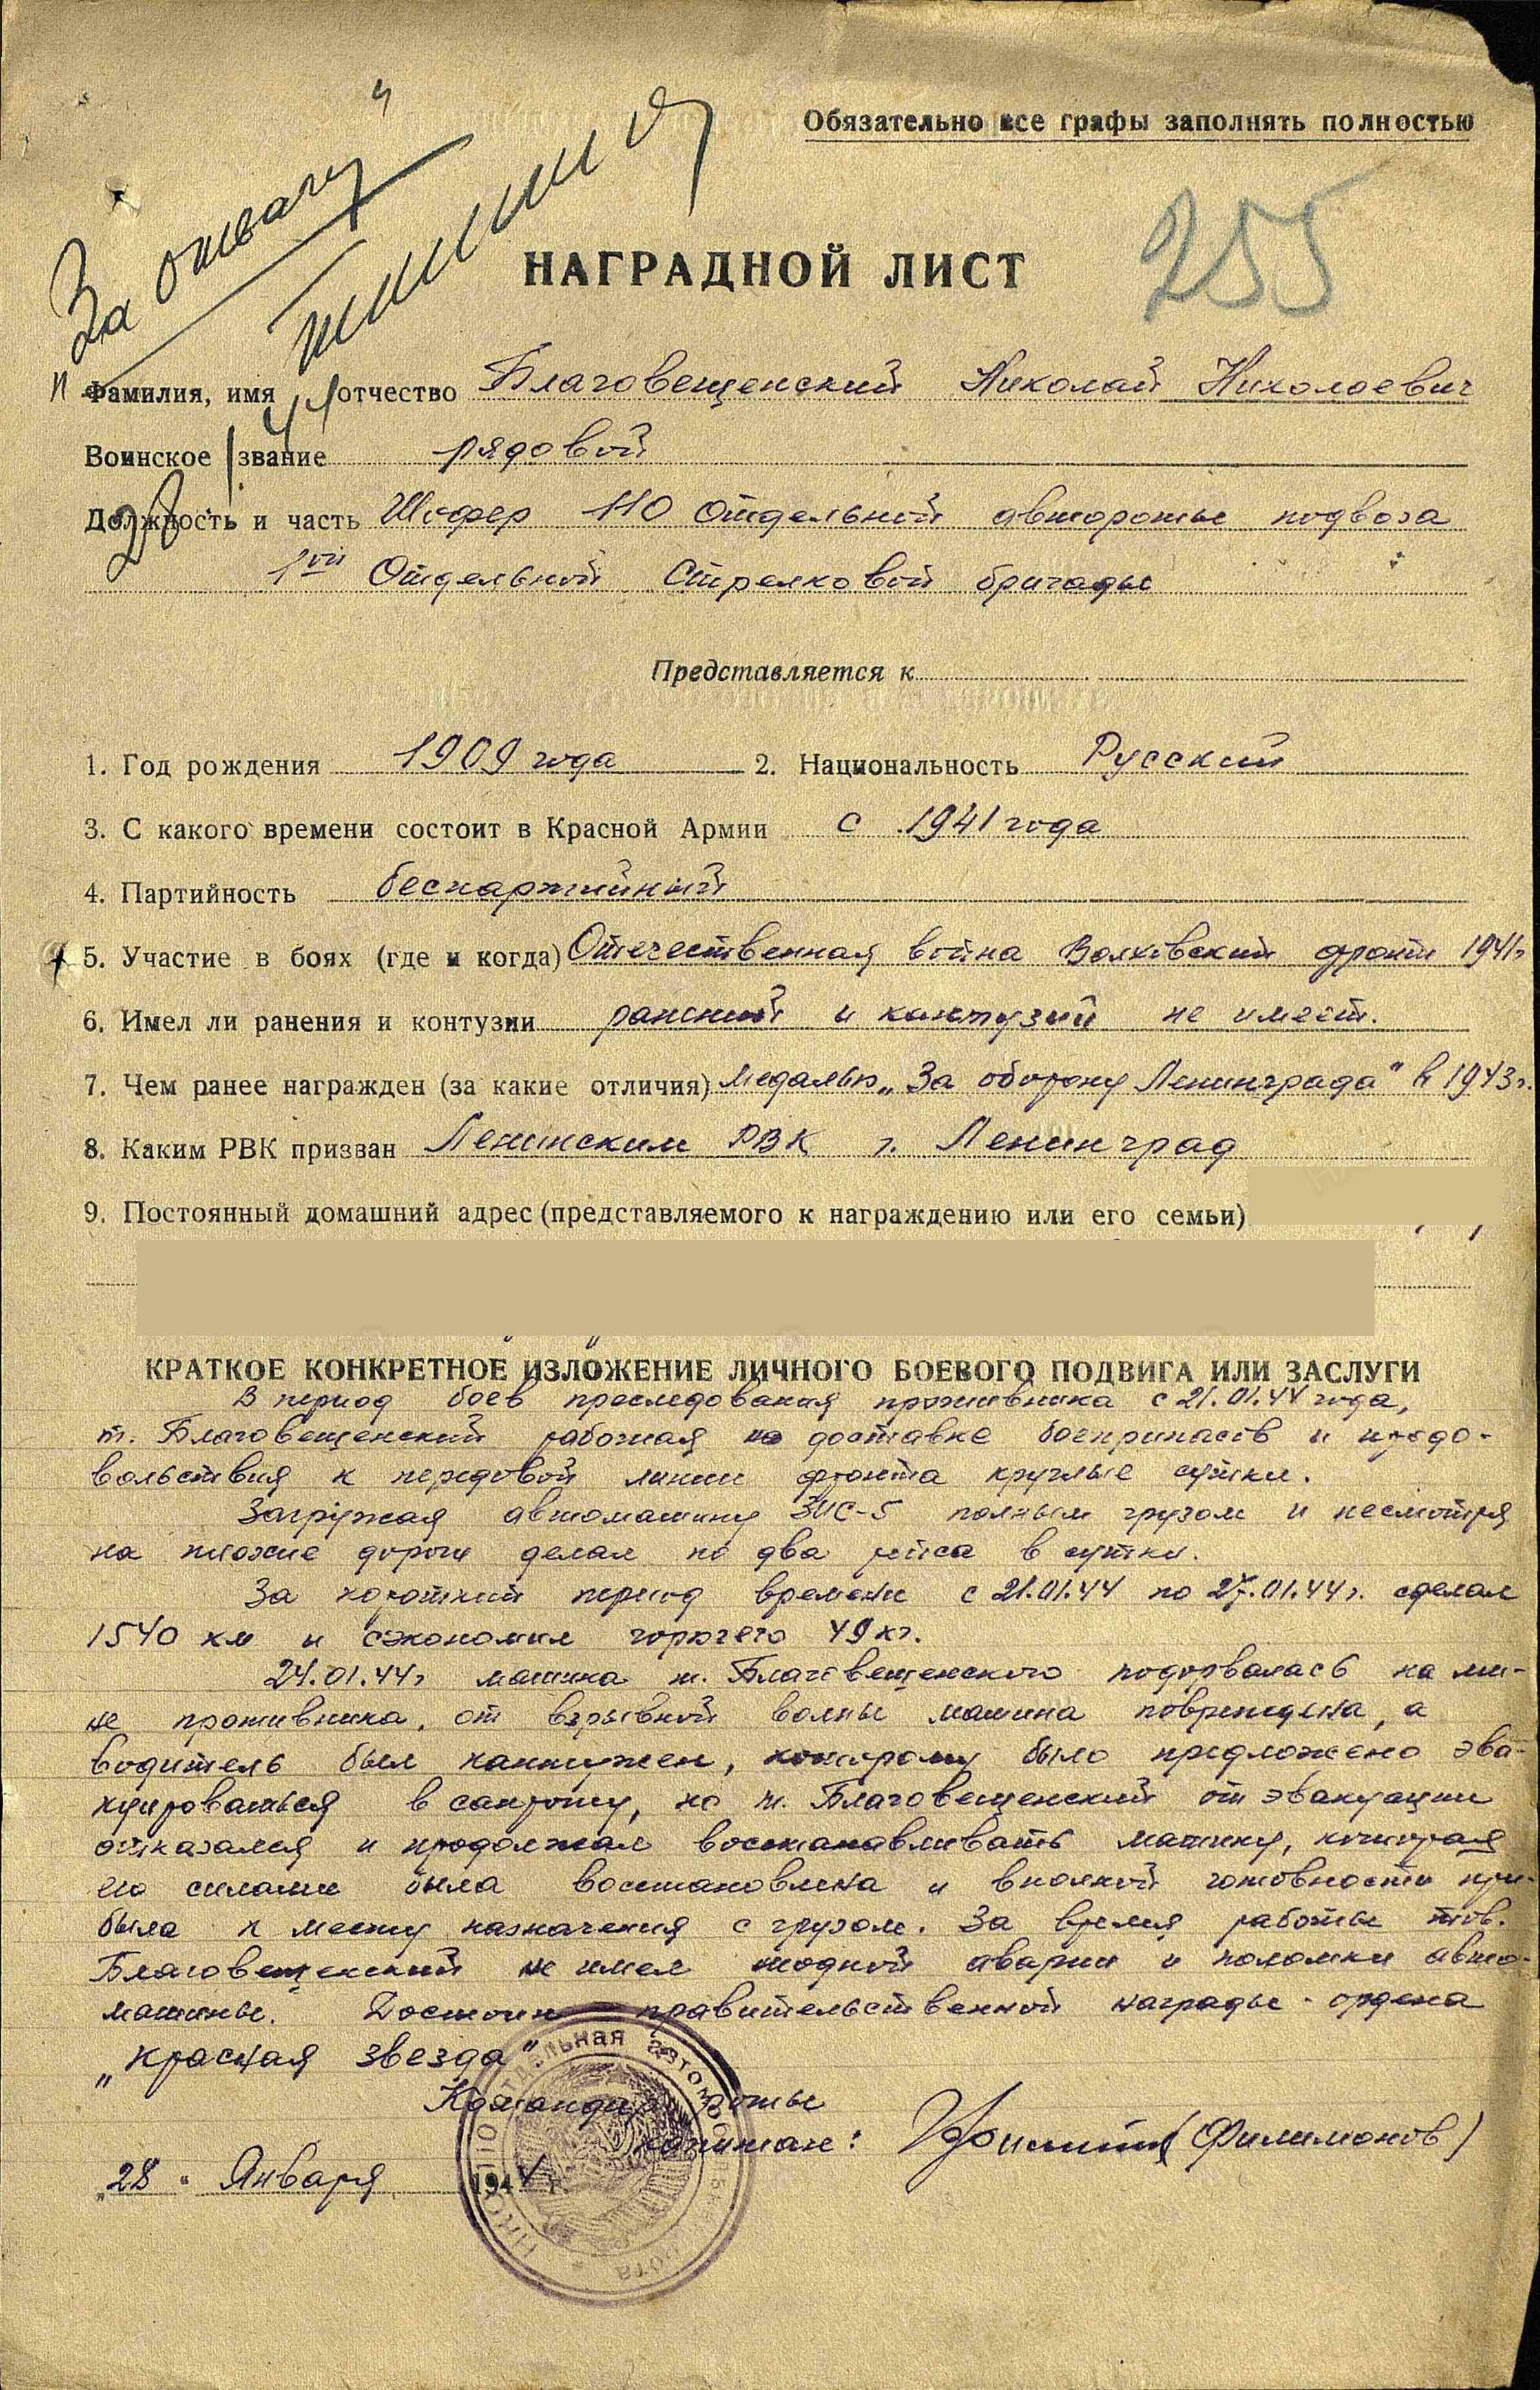 Обязательно все графы заполнять полностью
"За отвагу"
255
НАГРАДНОЙ ЛИСТ
Фамилия, имя и отчество Благовещенский Николай Николаевич
Воинское звание рядовой
Должность и часть Шофер 110 Отдельной автороты подвоза
1ой Отдельной Стрелковой бригады
Представляется к
1. Год рождения 1909 года 2. Национальность Русский
3. С какого времени состоит в Красной Армии с 1941 года
4. Партийность беспартийный
5. Участие в боях (где и когда) Отечественная война Волховский фронт 1941г
6. Имел ли ранения и контузии ранений и контузий не имеет.
7. Чем ранее награжден (за какие отличия) медалью „За оборону Ленинграда" в 1943г.
8. Каким РВК призван Ленинским РВК г. Ленинград
9. Постоянный домашний адрес (представляемого к награждению или его семьи)
КРАТКОЕ КОНКРЕТНОЕ ИЗЛОЖЕНИЕ ЛИЧНОГО БОЕВОГО ПОДВИГА ИЛИ ЗАСЛУГИ
В период боев преследования противника с 21.01.44 года,
т. Благовещенский работая на доставке боеприпасов и продо-
вольствия к передовой линии фронта круглые сутки.
Загружая автомашину ЗИС-5 полным грузом и несмотря
на плохие дороги делал по два рейса в сутки.
За короткий период времени с 21.01.44 по 27.01.44г. сделал
1540 км и сэкономил горючего 49 кг.
24.01.44г машина т. Благовещенского подорвалась на ми-
не противника, от взрывной волны машина повреждена, а
водитель был контужен, которому было предложено эва-
куироваться в санроту, но т. Благовещенский от эвакуации
отказался и продолжал востанавливать машину, которая
его силами была востановлена и вполной готовности при-
была к месту назначения с грузом. За время работы тов.
Благовещенский не имел ниодной аварии и поломки авто-
машины. Достоин правительственной награды - ордена
„Красная звезда"
Командир роты
капитан: (Филимонов)
„28" Января 1944 г.
НКО 110 отдельная автомобильная рота